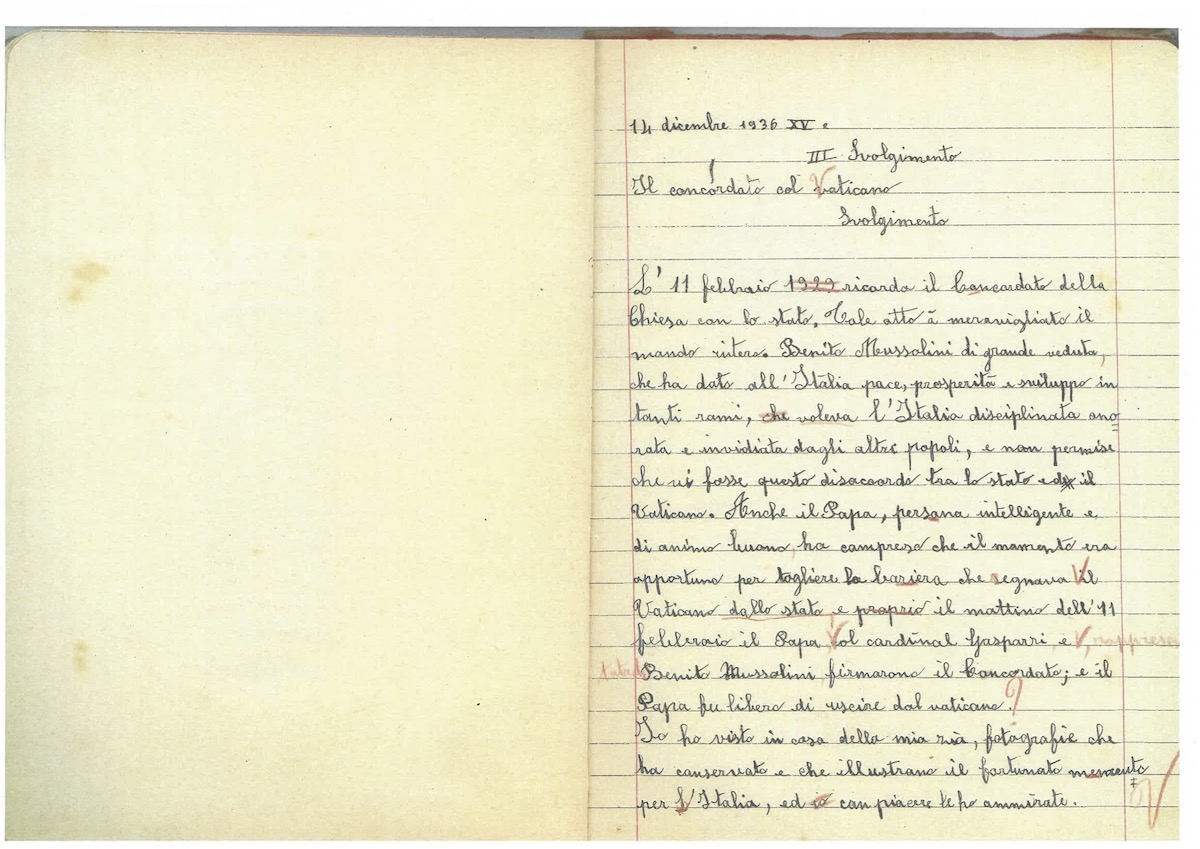 14 dicembre 1936 XV e
III Svolgimento
Il concordato col Vaticano
Svolgimento
L' 11 febbraio 1929 ricorda il Concordato della
Chiesa con lo stato. Tale atto à meravigliato il
mondo intero. Benito Mussolini di grande veduta,
che ha dato all'Italia pace, prosperità e sviluppo in
tanti rami, che voleva l'Italia disciplinata ono=
rata e invidiata dagli altri popoli, e non permise
che vi fosse questo disaccordo tra lo stato ed il
Vaticano. Anche il Papa, persona intelligente e
di animo buono, ha compreso che il momento era
opportuno per togliere la bariera che segnava il
Vaticano dallo stato, e proprio il mattino dell'11
febbraio il Papa, col cardinal Gasparri, e , rappresen
tato da Benito Mussolini firmarono il Concordato; e il
Papa fu libero di uscire dal vaticano. ?
Io ho visto in casa della mia zia, fotografie che
ha conservato e che illustrano il fortunato momento
per l'Italia, ed io con piacere le ho ammirate.